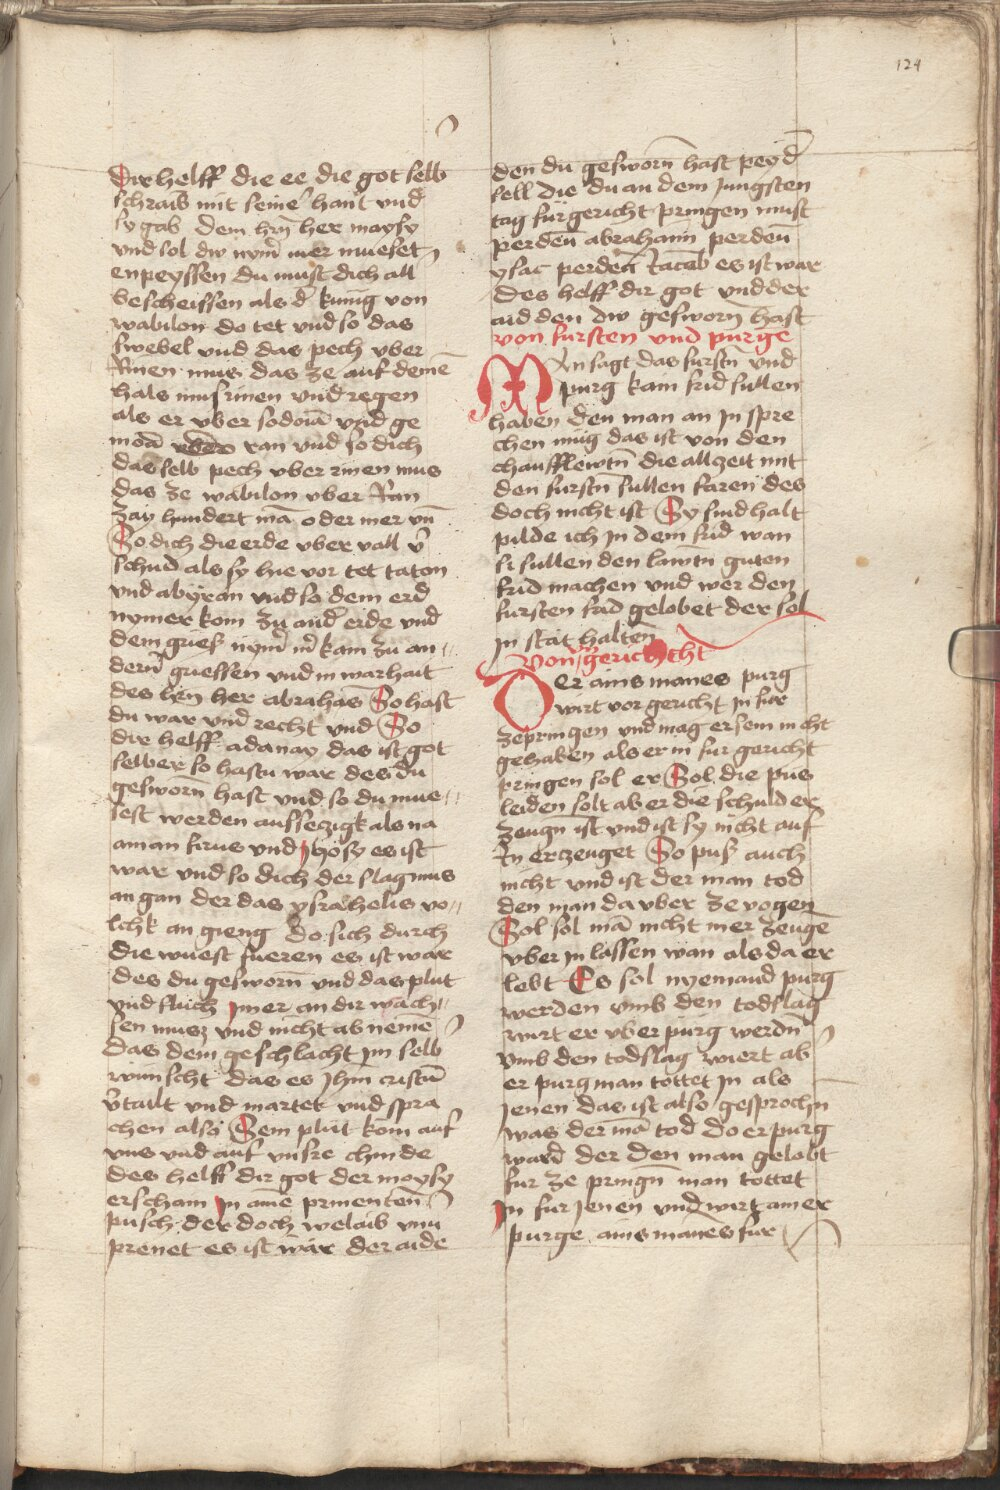 124
dir helff die ee die got selb
schraib mit seiner hant vnd
sy gab dem hrn her moysy
vnd sol dw nymer mer muesset
enpeyssen du must dich all
bescheissen als der kunig von
wabilon do tet vnd so das
swebel vnd das pech vber
Rinen mus das ze auf deinē
hals mus rinen vnd regen
als er vber sodomā vnd ge
moā ran vnd so dich
das selb pech vber rinen mus
das ze wabilon vber Ran
zway hundert mā oder mer vn̄
So dich die erde vber vall vn̄
schlud als sy hie vor tet taton
vnd abyran vnd so dein erd
nymer kom zu ander erde vnd
dein gries nymer mer kom zu an
dern griessen vnd in warhait
des hrn her abrahās So hast
du war vnd recht vnd So
dir helff adanay das ist got
selber so hastu war des du
gesworn hast vnd so du mue
sest werden aussezigk als na
aman sirus vnd Josy es ist
war vnd so dich der slag mus
an gan der das ysrahelis vo
lchk an gieng do sich durch
die wuest fueren es ist war
des du gesworn vnd das plut
vnd fluch ymer an dir wach
sen musz vnd nicht ab nemē
das dein geschlacht im selb
wunscht das es Jhm cristū
vertailt vnd martet vnd spra
chen also Sein plut kom auf
vns vnd auf vnsre chinde
des helff dir got der moysy
erscham in aine prinenten
pusch der doch welaib vnu
prenet es ist war der aide
den du gesworn hast pey der
sell die du an dem Jungsten
tag fur gericht pringen must
per den abraham per den
ysac per den Jacob es ist war
des helff dir got vnd der
aid den dw gesworn hast
von fursten vnd purge
MAn sagt das furstn vnd
purg kain frid sullen
haben den man an In spre
chen mug das ist von den
chaufflewtn die allzeit mit
den furstn sullen faren des
doch nicht ist Sy sind halt
pilde ich In dem frid wan
si sullen den lawtn guten
frid machen vnd wer den
fursten frid gelobet der sol
In stat halten
von gerichcht
Der ains manes purg
wirt vor gericht In fur
ze pringen vnd mag er sein nicht
gehaben als er in fur gericht
pringen sol er Sol die pus
leiden solt aber die schuld er
zeugn ist vnd ist sy nicht auf
In erczeuget So pus auch
nicht vnd ist der man tod
den man da vber ze vogen
Sol sol mā nicht mer zeuge
vber in lassen wan als da er
lebt Es sol nyemand purg
werden vmb den todslag
wirt er vber purg werdn
vmb den todslag wiert ab
er purg man tottet In als
Jenen das ist also gesprochn
was der mā tod do er purg
ward der den man gelobt
fur ze pringn man tottet
In fur Jenen vnd wirt ainer
purge ains manes fur